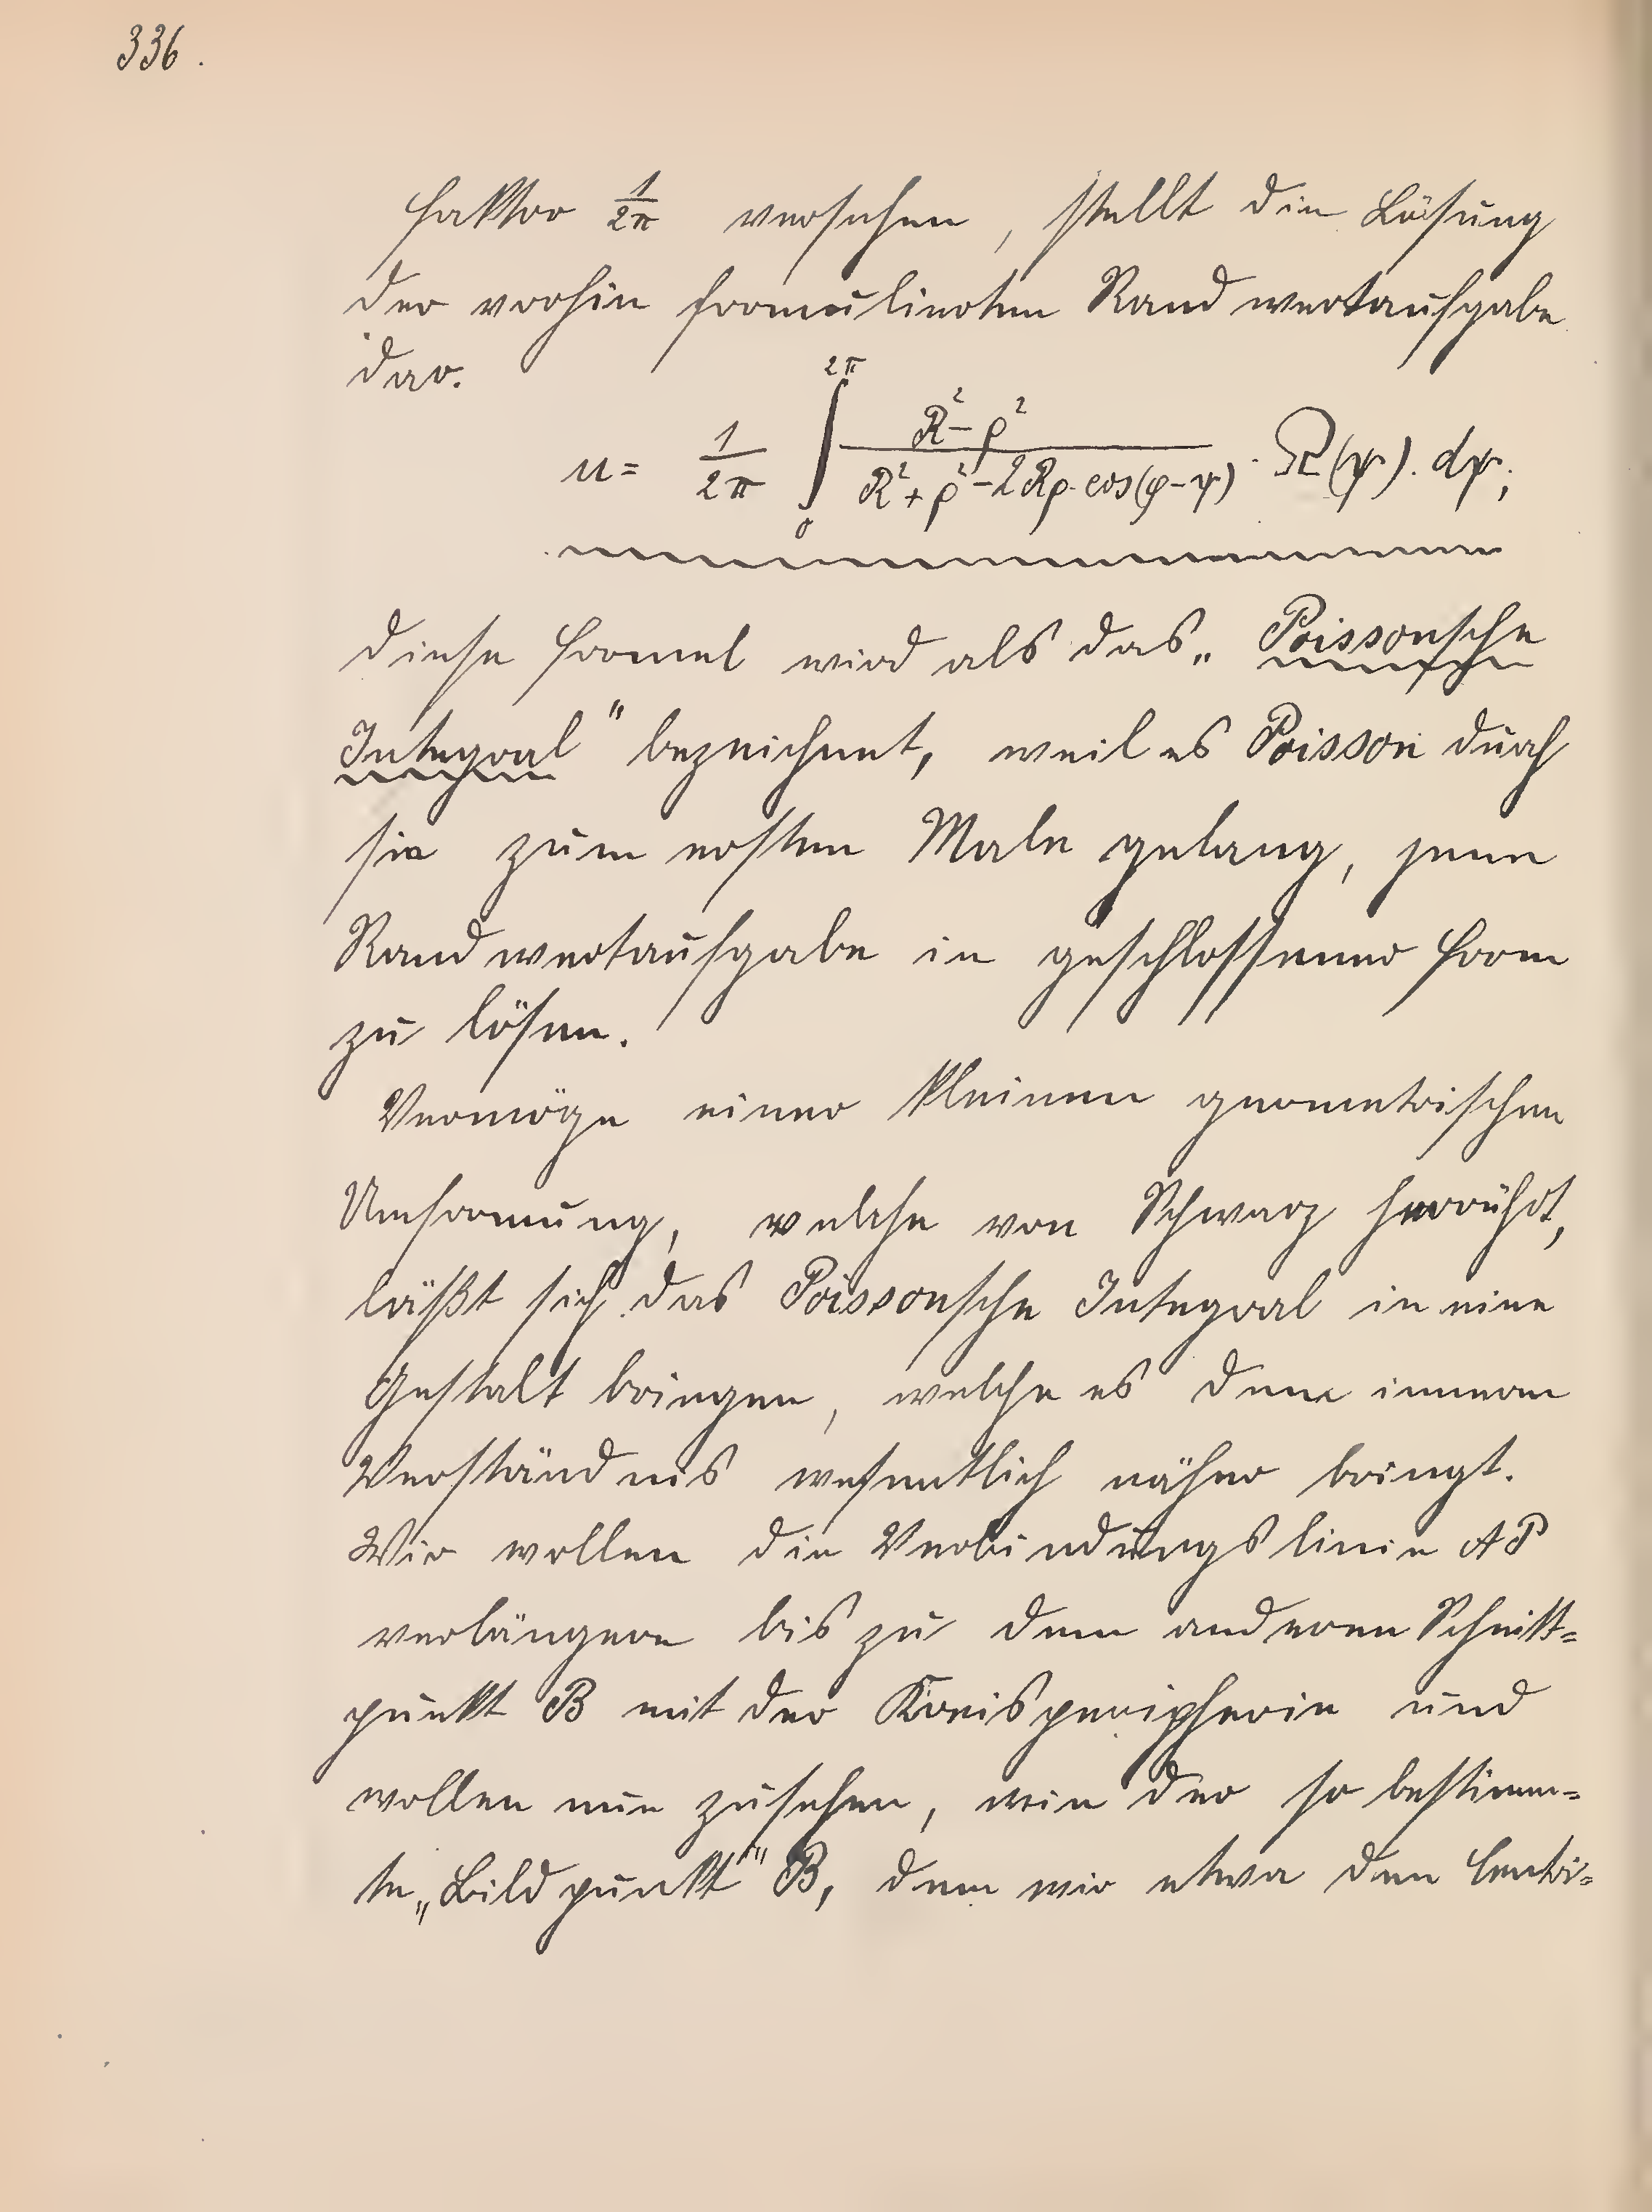 336.
Faktor 1/2π versehen, stellt die Lösung
der vorhin formulierten Randwertaufgabe
dar.
u = 1/2π ∫₀^{2π} (R² − ρ²)/(R² + ρ² − 2Rρ · cos(φ − ψ)) · Ω(ψ) · dψ;
diese Formel wird als das „Poissonsche
Integral" bezeichnet, weil es Poisson durch
sie zum ersten Male gelang, jene
Randwertaufgabe in geschlossener Form
zu lösen.
Vermöge einer kleinen geometrischen
Umformung, welche von Schwarz herrührt,
läßt sich das Poissonsche Integral in eine
Gestalt bringen, welche es dem inneren
Verständnis wesentlich näher bringt.
Wir wollen die Verbindungslinie AP
verlängern bis zu dem anderen Schnitt=
punkt B mit der Kreisperipherie und
wollen nun zusehen, wie der so bestimm=
te „Bildpunkt" B, dem wir etwa den Centri=